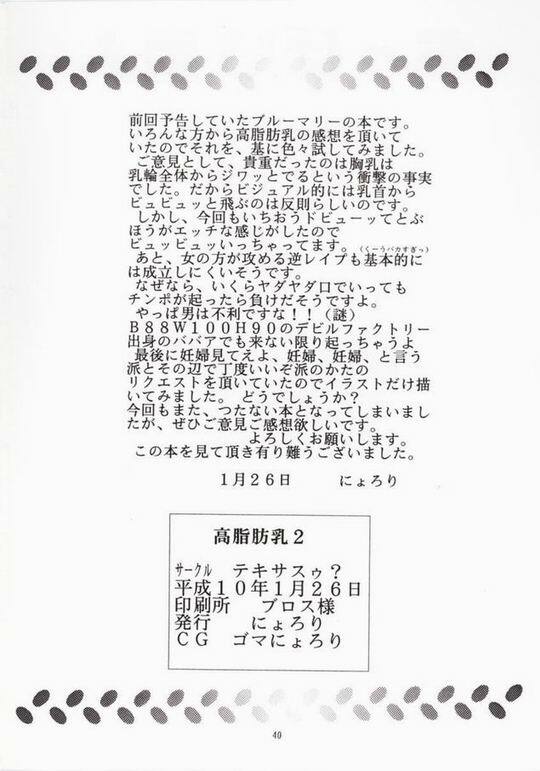 前回予告していたブルーマリーの本です。
いろんな方から高脂肪乳の感想を頂いて
いたのでそれを、基に色々試してみました。
ご意見として、貴重だったのは胸乳は
乳輪全体からジワッとでるという衝撃の事実
でした。だからビジュアル的には乳首から
ビュビュッと飛ぶのは反則らしいのです。
しかし、今回もいちおうドビューッてとぶ
ほうがエッチな感じがしたので
ビュッビュッいっちゃってます。(くーうバカすぎっ)
あと、女の方が攻める逆レイプも基本的に
は成立しにくいそうです。
なぜなら、いくらヤダヤダ口でいっても
チンポが起ったら負けだそうですよ。
やっぱ男は不利ですな!!(謎)
B88W100H90のデビルファクトリー
出身のババアでも来ない限り起っちゃうよ
最後に妊婦見てえよ、妊婦、妊婦、と言う
派とその辺で丁度いいぞ派のかたの
リクエストを頂いていたのでイラストだけ描
いてみました。どうでしょうか?
今回もまた、つたない本となってしまいまし
たが、ぜひご意見ご感想欲しいです。
よろしくお願いします。
この本を見て頂き有り難うございました。
1月26日 にょろり
高脂肪乳2
サークル テキサスゥ?
平成10年1月26日
印刷所 ブロス様
発行 にょろり
CG ゴマにょろり
40